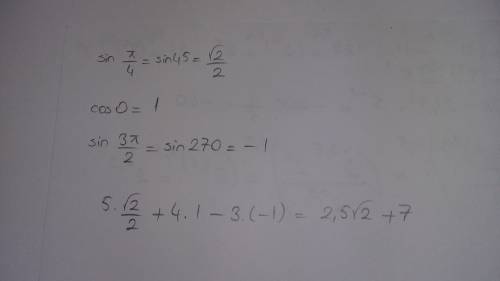 sin π/4 = sin45 = √2/2
cos0 = 1
sin 3π/2 = sin270 = -1
5.√2/2 + 4.1 - 3.(-1) = 2,5√2 + 7